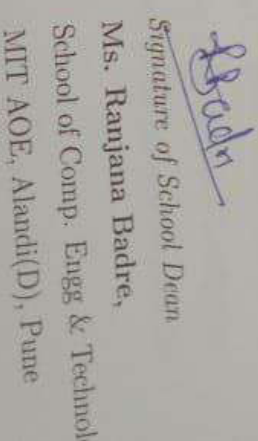 Signature of School Dean
Ms. Ranjana Badre,
School of Comp. Engg & Technol
MIT AOE, Alandi(D), Pune